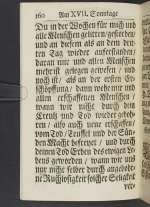 160 Am XVII. Sonntage
Du in der Wochen für mich und
alle Menschen gelitten/gestorben/
und an diesem als an dem drit-
ten Tag wieder aufferstanden/
daran mir und allen Menschen
mehr als gelegen gewesen / und
noch ist / als an der ersten Er-
schöpffung / dann wehe mir und
allen erschaffenen Menschen /
wann wir nicht durch dein
Creutz und Tod wieder geboh-
ren / also noch neue erschaffen /
vom Tod / Teuffel und der Sün-
den Macht befreyet / und durch
deinen Tod Erben des ewigen Le-
bens geworden / wann wir uns
nur nicht selber durch angebohr-
ne Ruchlosigkeit solcher Seligkeit
ver-